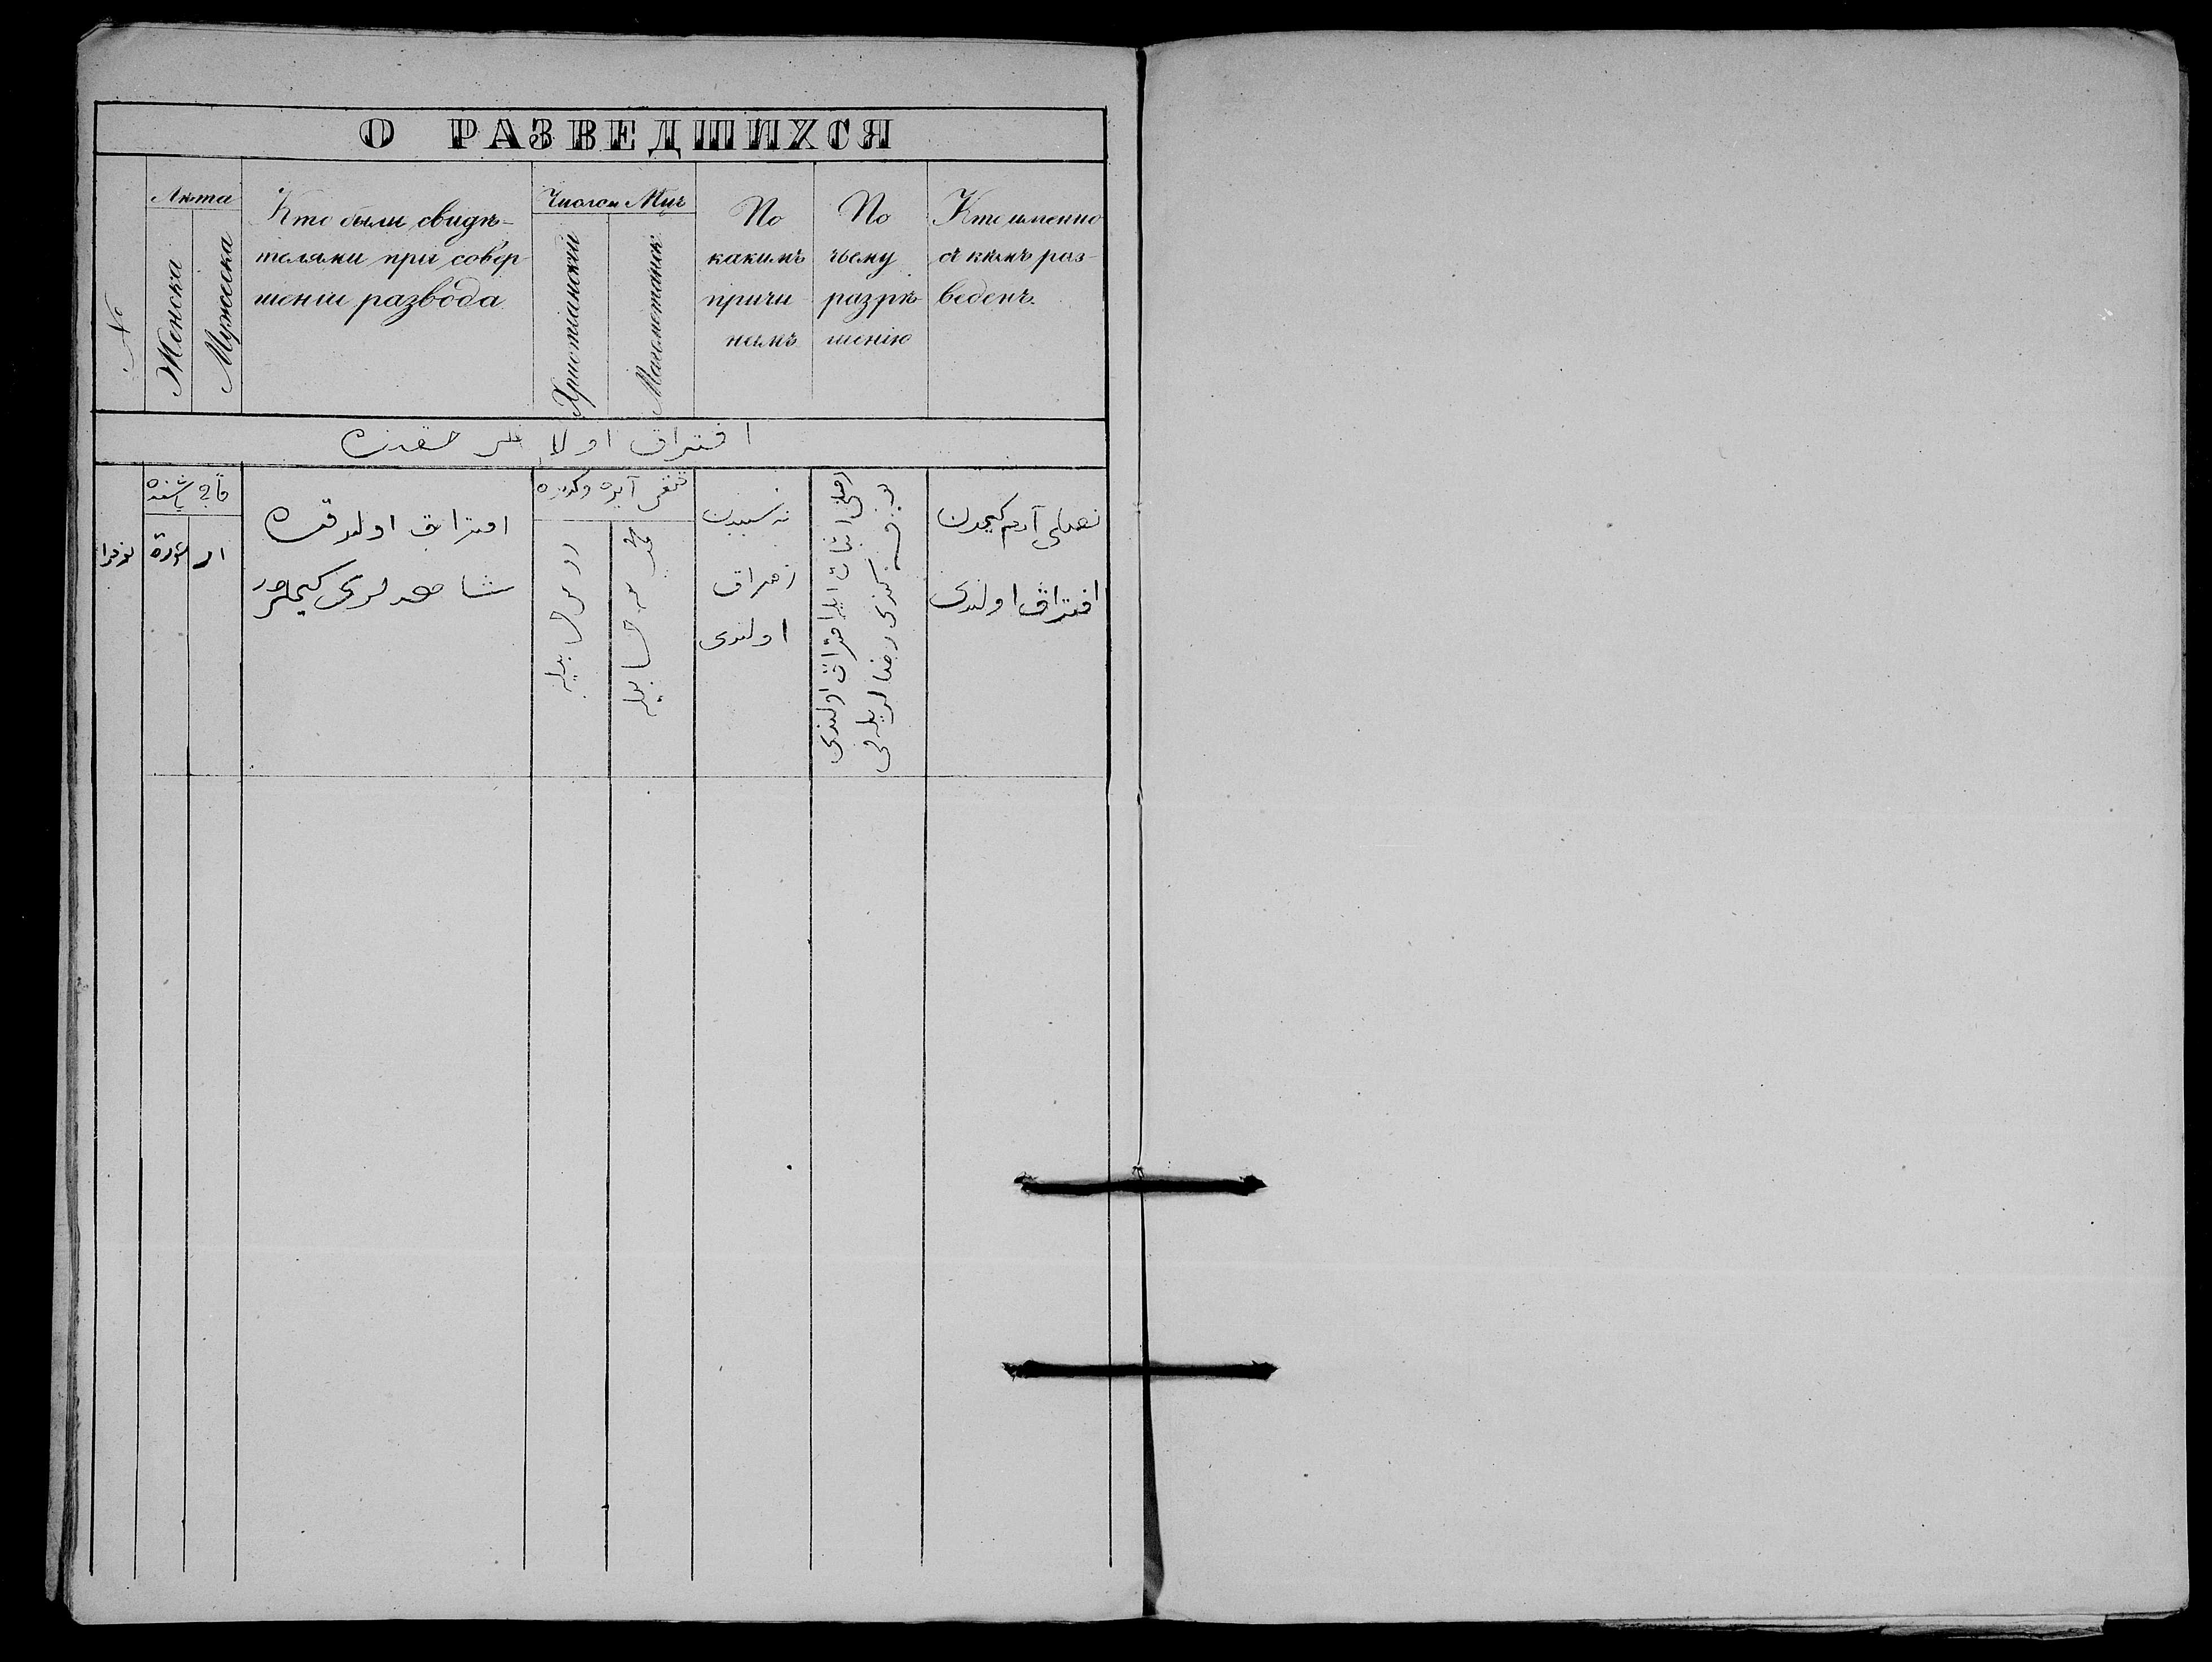 О РАЗВЕДШИХСЯ
№
Лѣта
Женска
Мужеска
Кто были свидѣ-
телями при совер-
шеніи развода
Число и Мцъ
Христіанскій
Магометанск.
По
какимъ
причи
намъ
По
чьему
разрѣ-
шенію
Кто именно
съ кѣмъ раз-
веденъ.
افتراق اولانلر حقنده
قاچ یاشنده
ار
افتراق اولدقده
شاهدلری کیملردر
روس حسابیله
نه سببدن
افتراق
اولندی
آدم کیمدن
افتراق اولندی